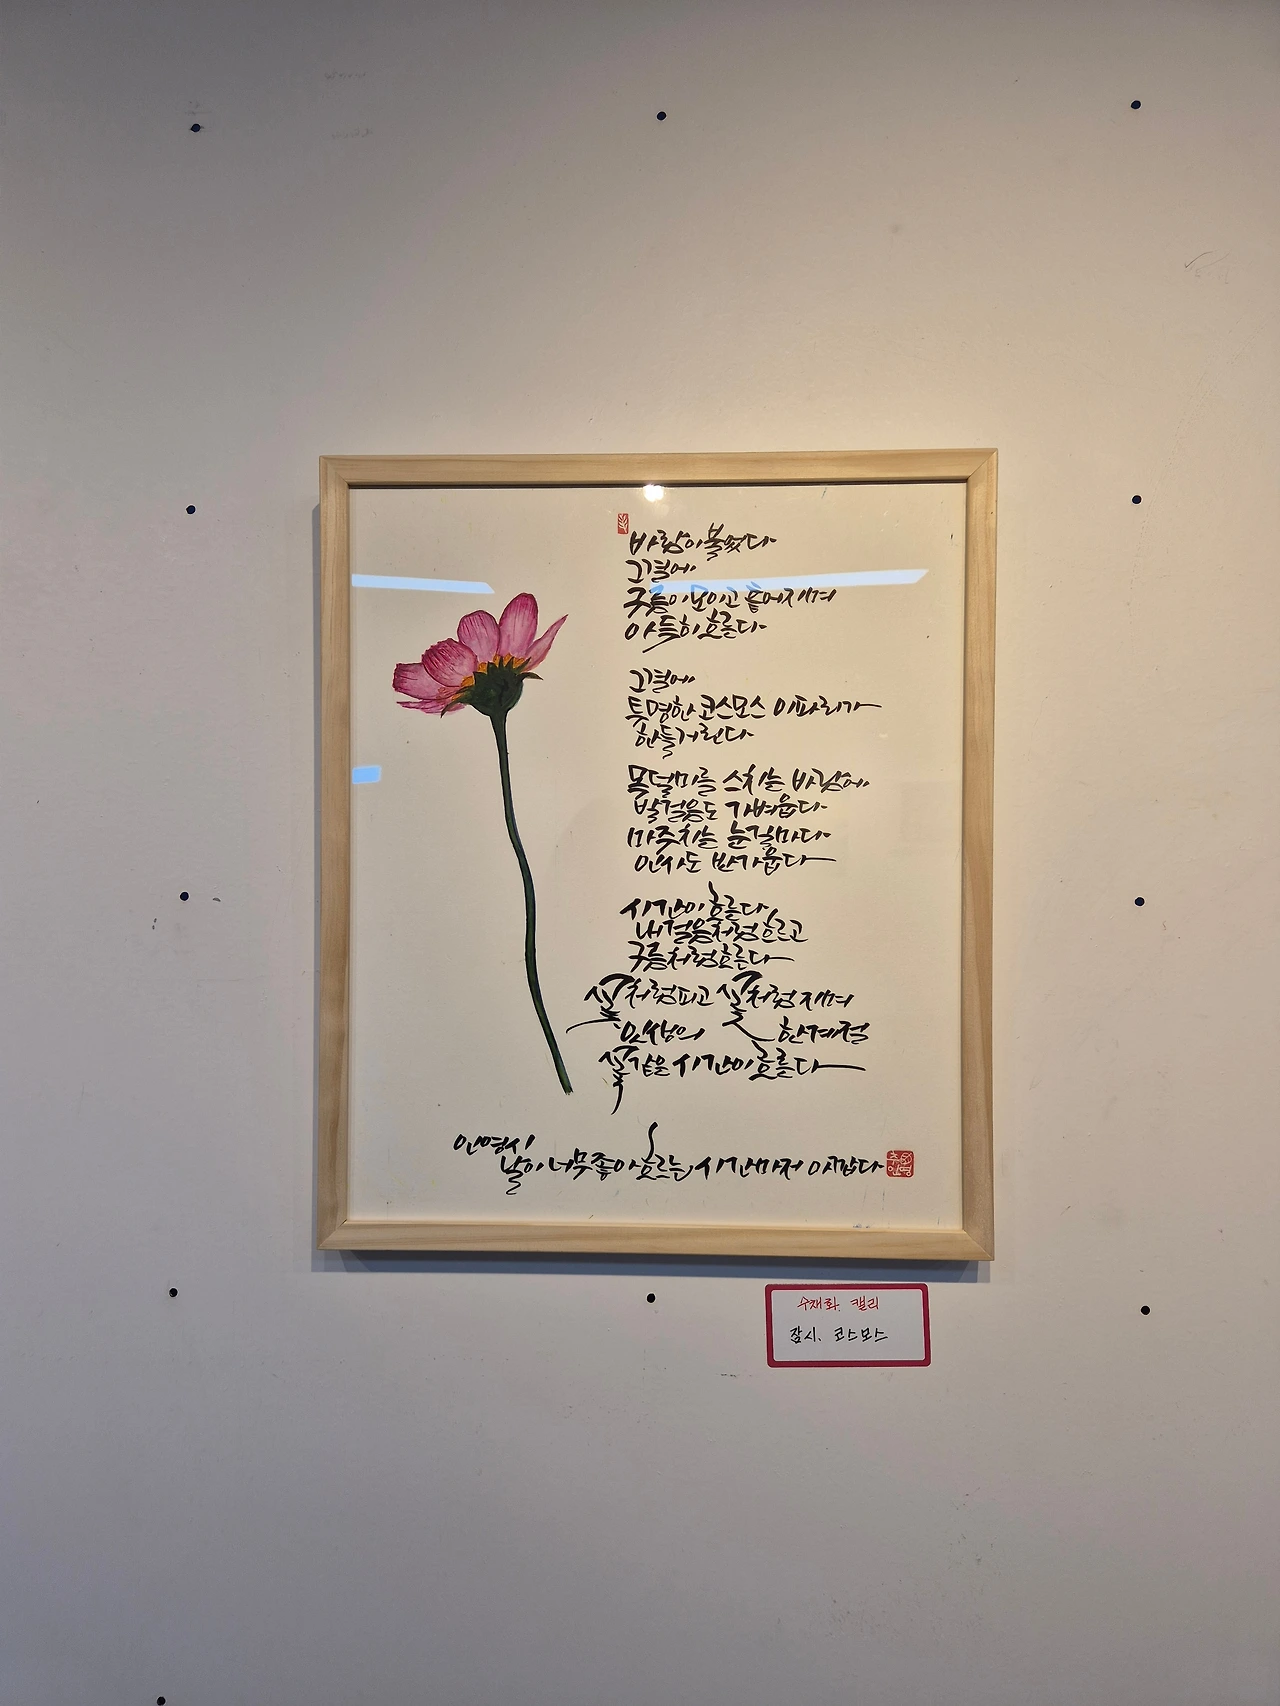 바람이 불었다
그 결에
구름이 모이고 흩어지며
아득히 흐른다
그 결에
투명한 코스모스 이파리가
한들거린다
목덜미를 스치는 바람에
발걸음도 가벼웁다
마주치는 눈길마다
인사도 반가웁다
시간이 흐른다
내 걸음처럼 흐르고
구름처럼 흐른다
꽃처럼 피고 꽃처럼 지며
인생의 한 계절
꽃같은 시간이 흐른다
인영시
날이 너무 좋아 흐르는 시간마저 아깝다
수채화. 캘리
잠시. 코스모스